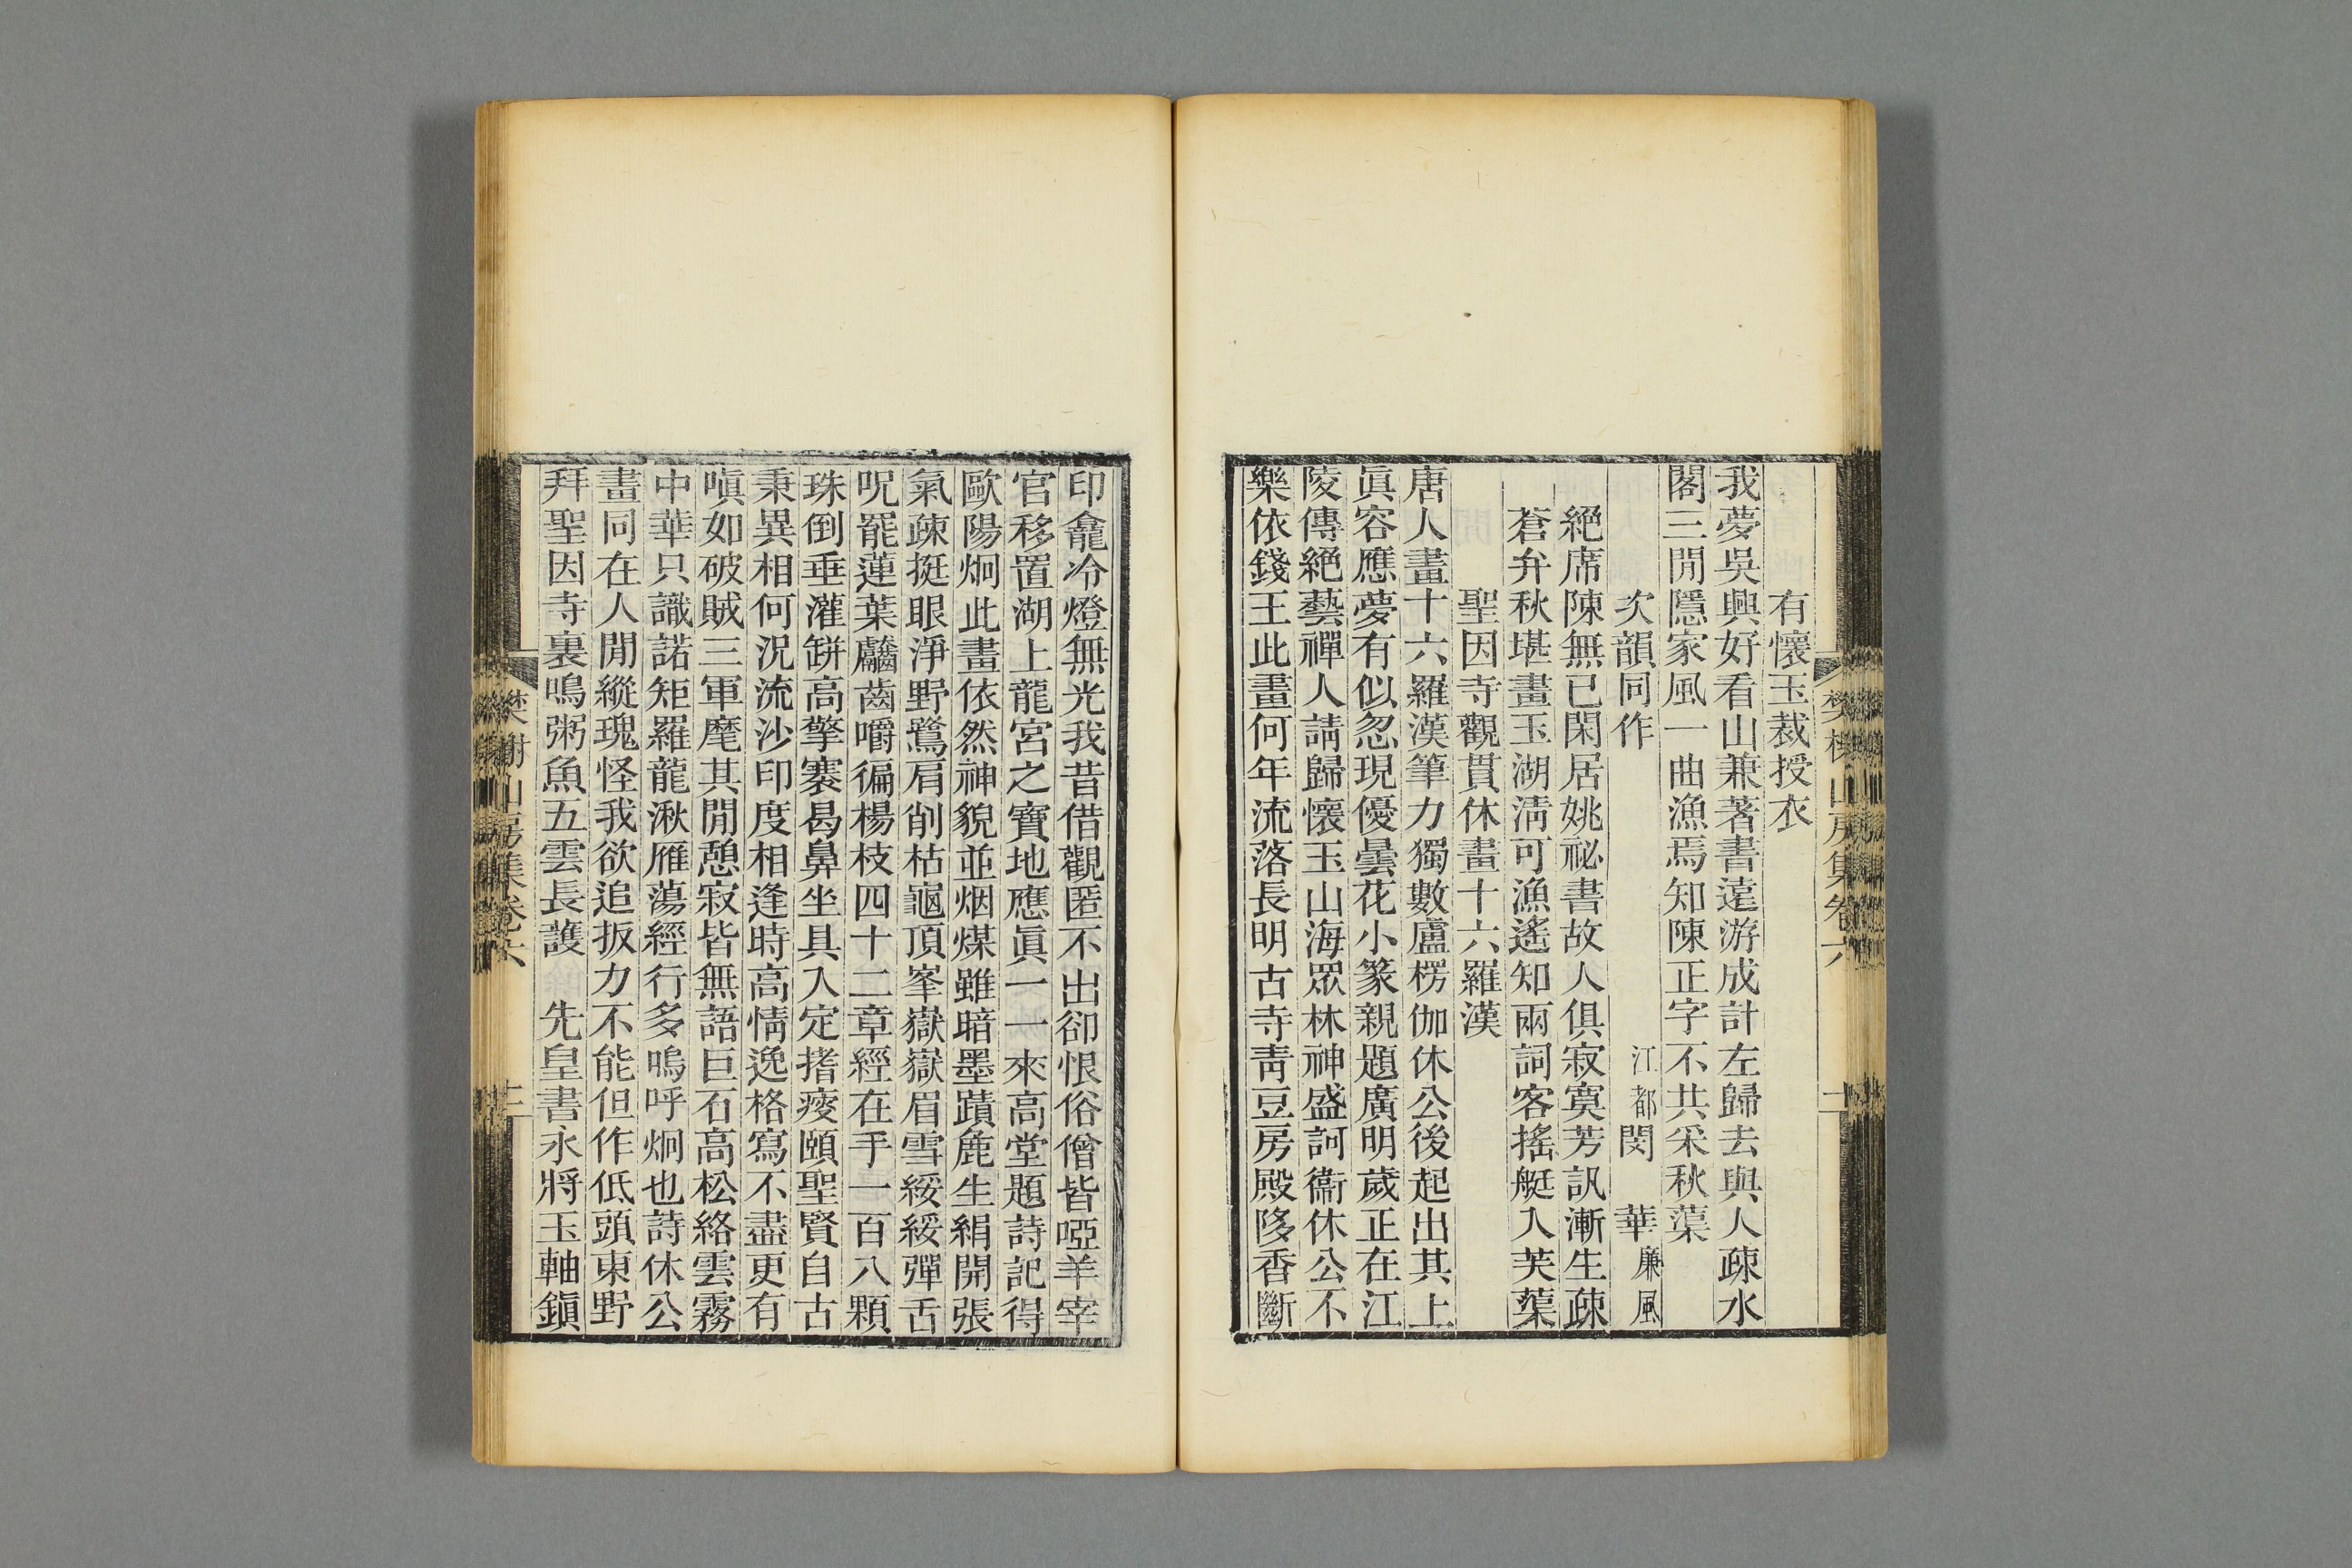 樊榭山房集卷六
有懷玉裁授衣
我夢吳興好看山兼著書遠游成計左歸去與人疎水
閣三閒隱家風一曲漁焉知陳正字不共采秋蕖
次韻同作 江都閔 華廉風
絕席陳無已閑居姚祕書故人俱寂寞芳訊漸生疎
蒼弁秋堪畫玉湖淸可漁遙知兩詞客搖艇入芙蕖
聖因寺觀貫休畫十六羅漢
唐人畫十六羅漢筆力獨數盧楞伽休公後起出其上
眞容應夢有似忽現優曇花小篆親題廣明歲正在江
陵傳絕藝禪人請歸懷玉山海眾林神盛訶衞休公不
樂依錢王此畫何年流落長明古寺靑豆房殿陊香斷
印龕冷燈無光我昔借觀匿不出卻恨俗僧皆啞羊宰
官移置湖上龍宮之寶地應眞一一來高堂題詩記得
歐陽炯此畫依然神貌並烟煤雖暗墨蹟麄生絹開張
氣疎挺眼淨野鷺肩削枯龜頂峯嶽嶽眉雪綏綏彈舌
呪罷蓮葉齾齒嚼徧楊枝四十二章經在手一百八顆
珠倒垂灌缾高擎褰曷鼻坐具入定搘痠頤聖賢自古
秉異相何況流沙印度相逢時高情逸格寫不盡更有
嗔如破賊三軍麾其閒憩寂皆無語巨石高松絡雲霧
中華只識諾矩羅龍湫雁蕩經行多嗚呼炯也詩休公
畫同在人閒縱瑰怪我欲追扳力不能但作低頭東野
拜聖因寺裏鳴粥魚五雲長護 先皇書永將玉軸鎭
樊榭山房集卷六